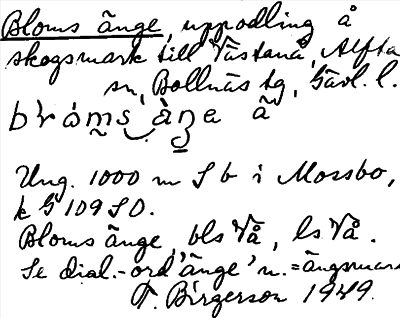 Bloms änge, uppodling å
skogsmark till Västanå, Alfta
sn, Bollnäs tg, Gävl. l.
Ung. 1000 m S b i Mossbo,
k 109 SO.
Bloms änge, bls Vå, ls Vå.
Se dial.-ord 'änge' n. = ängsmark
T. Birgerson 1949.